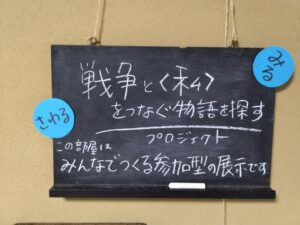 戦争と〈私〉
をつなぐ物語を探す
プロジェクト
この部屋は
みんなでつくる参加型の展示です
さわる
みる